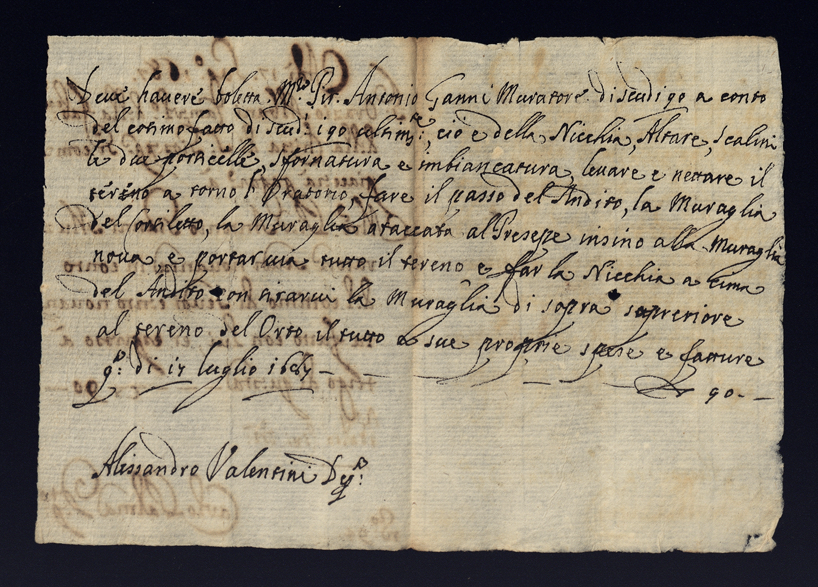 Deve havere boletta M.ro Pir. Antonio Ganni Muratore di scudi 90 a conto
del cotimo fatto di scud. 190 ultim.te, ciò è della Nicchia, Altare, scalini
le due porticelle, sfornatura e imbiancatura, levare e nettare il
tereno a torno l'Oratorio, fare il passo del Andito, la Muraglia
del Cortiletto, la Muraglia ataccata al Presepe insino alla Muraglia
nova e portar via tutto il tereno e far la Nicchia a cima
del Andito con tirarvi la Muraglia di sopra superiore
al tereno del Orto il tutto a sue proprie spese e fatture
q.o di 17 luglio
90 - -
Alessandro Valentini